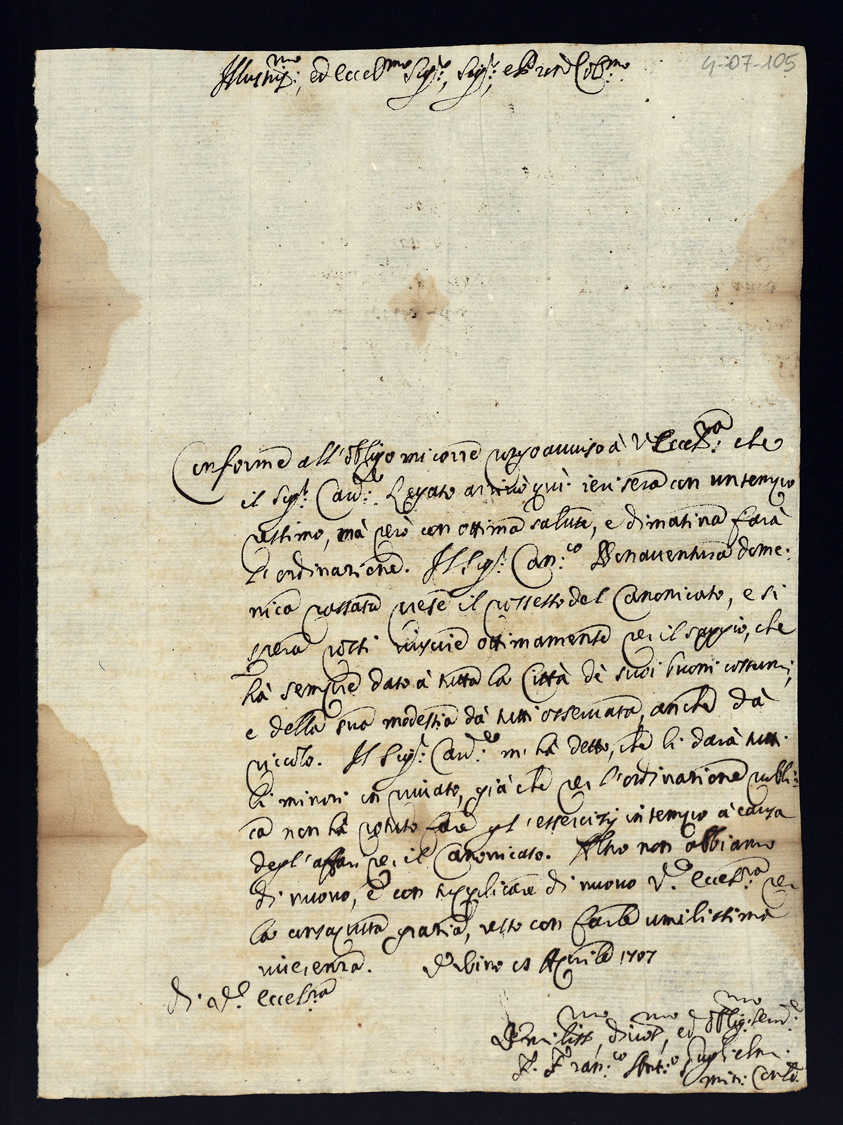 Illustriss:mo, ed Eccell:mo Sig:re, Sig:re, e Pron Col:mo
4-07-105
Conforme all'obligo mi corre porgo avviso à V. Eccell:za che
il Sig:r Card:le Legato arrivò quì ieri sera con un tempo
pessimo, mà però con ottima salute, e dimatina farà
l'ordinazione. Il Sig:r Can:co Bonaventura dome-
nica passata prese il possesso del Canonicato, e si
spera possi riuscire ottimamente per il saggio, che
hà sempre dato à tutta la Città de suoi buoni costumi,
e della sua modestia dà tutti osservata, anche dà
piccolo. Il Sig:r Card:le mi hà detto, che li darà tutti
li minori in privato, già che per l'ordinazione publi-
ca non hà potuto fare gl'essercizij in tempo à causa
degl'affari per il Canonicato. Altro non abbiamo
di nuovo, e con supplicare di nuovo V.ra Eccell:za per
la consaputa grazia, resto con farle umilissima
riverenza. Urbino Aprile 1707
Di V.ra Eccell:za
Umiliss:mo, divot:mo, ed oblig:mo serv:re
F. Fran:co Ant:o Guglielmi
min: Conv:le